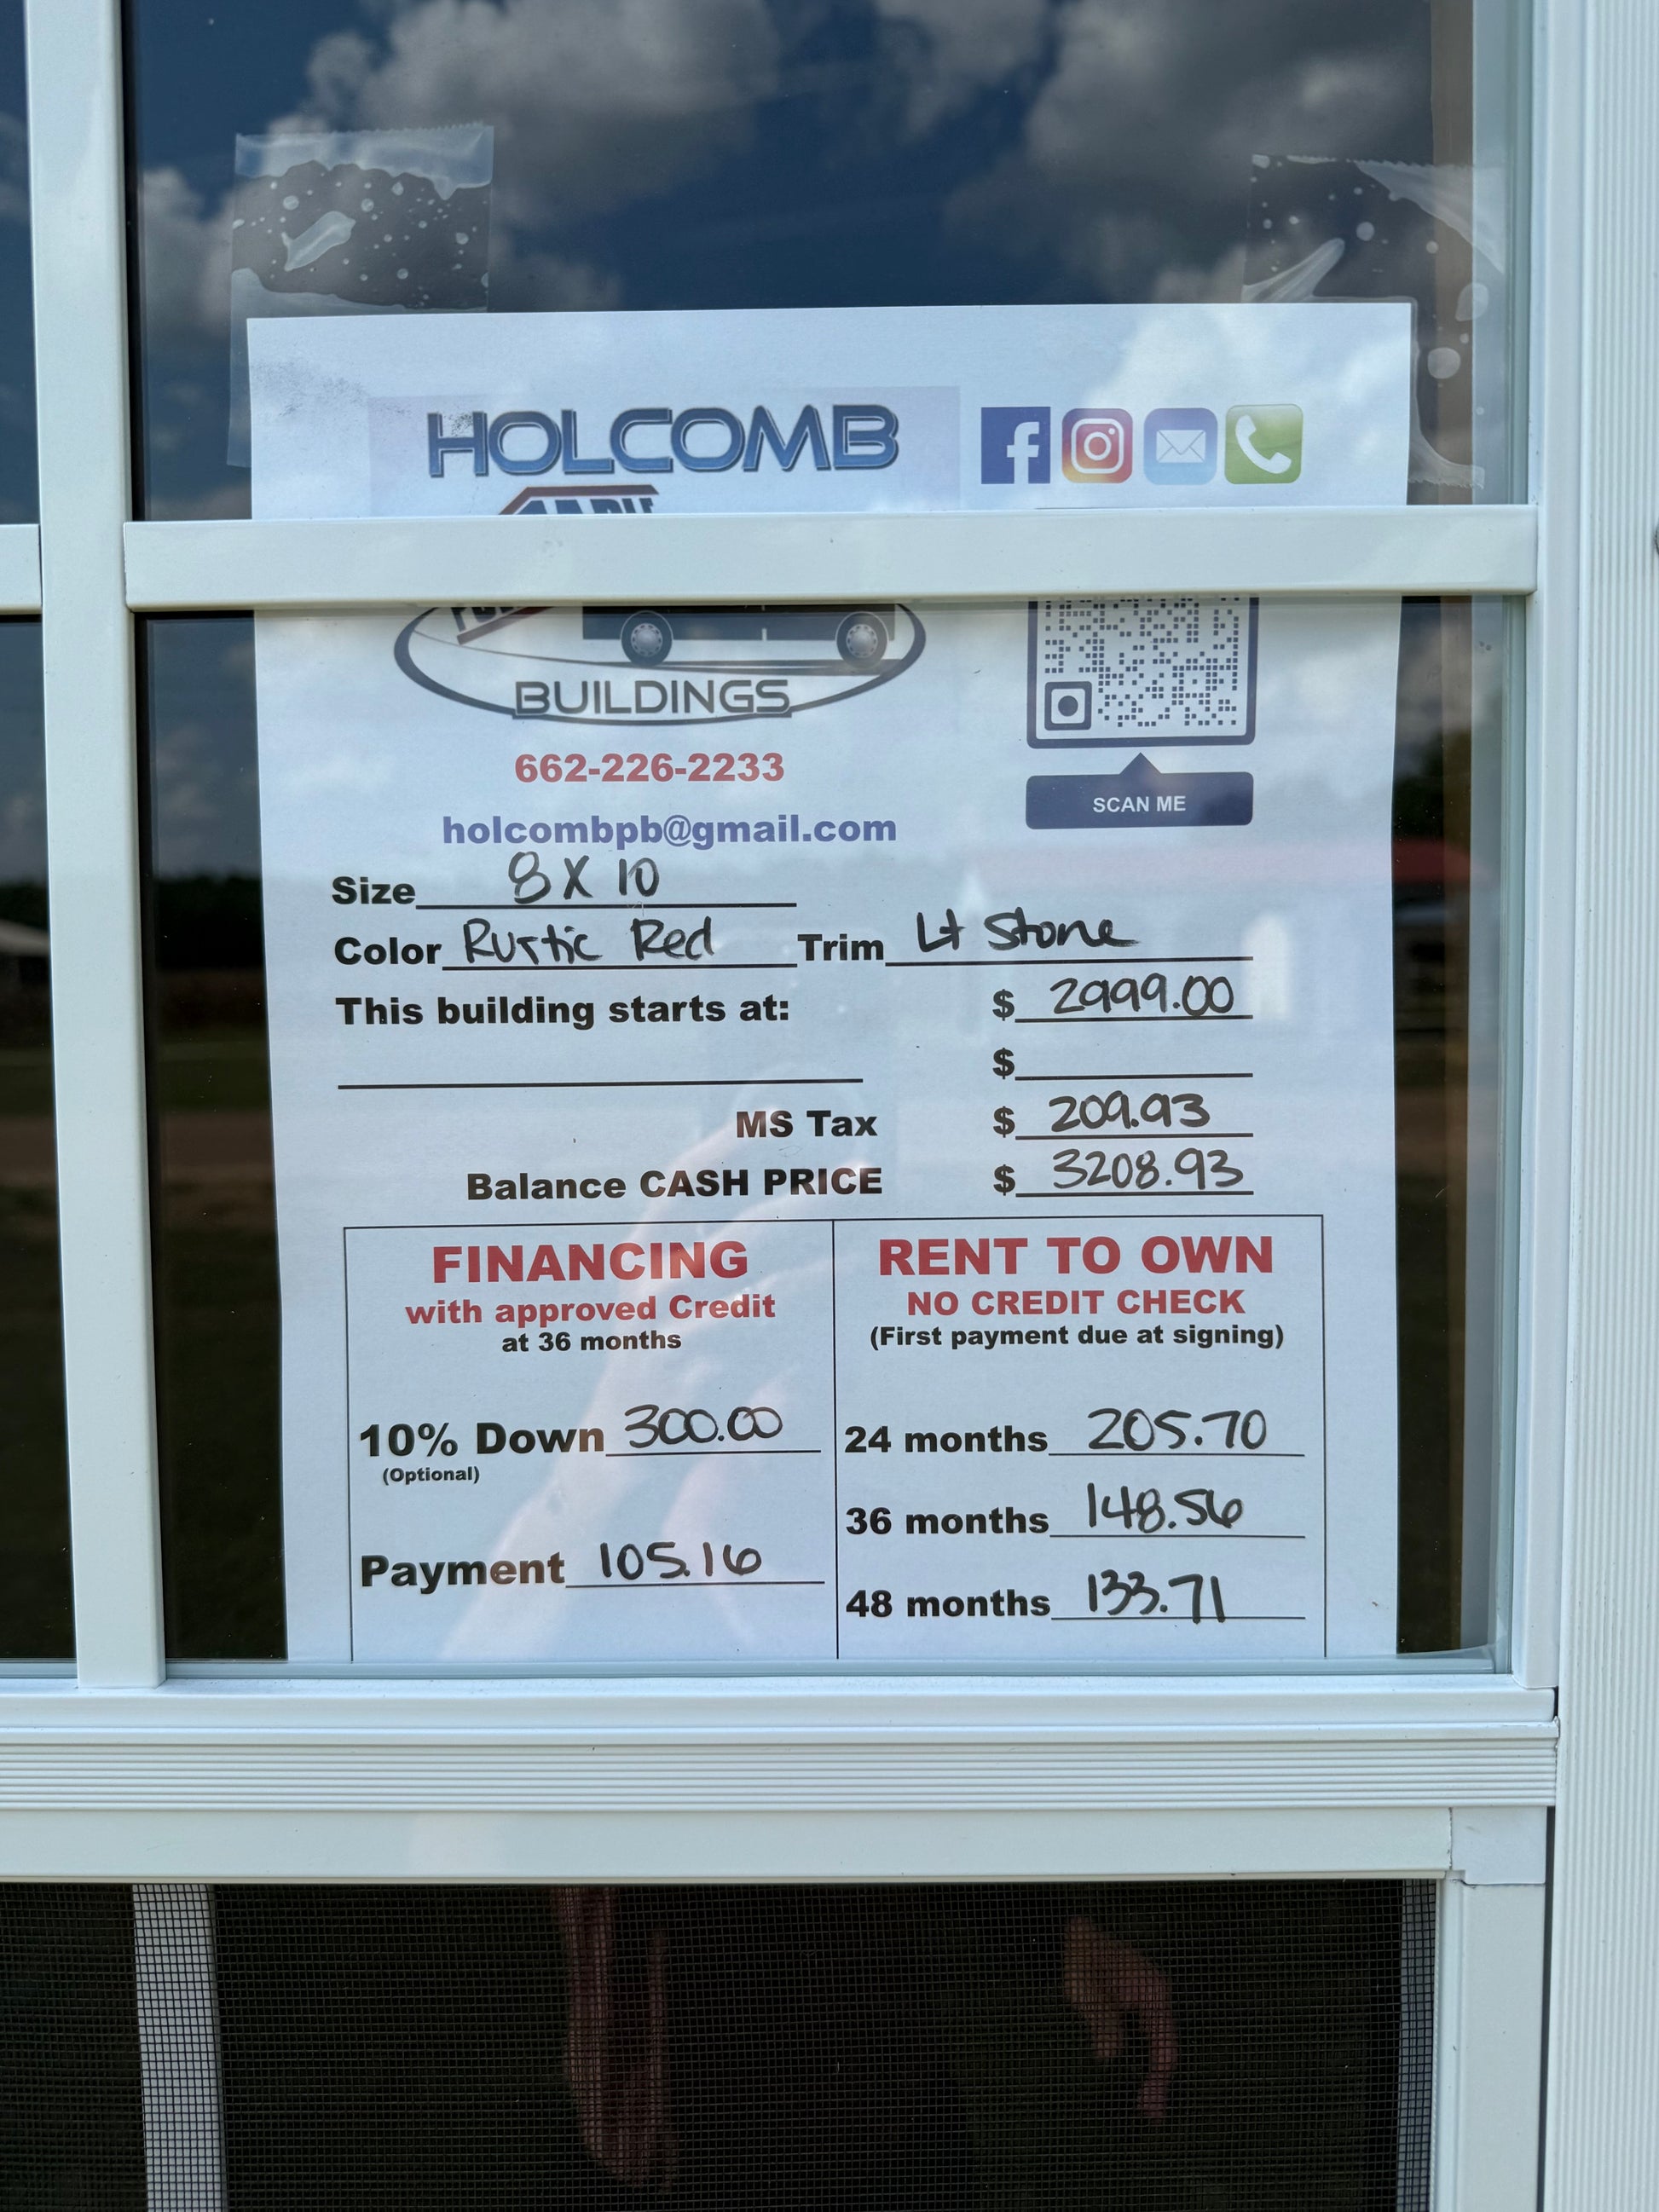 HOLCOMB
BUILDINGS
662-226-2233
SCAN ME
holcombpb@gmail.com
Size 8 X 10
Color Rustic Red Trim Lt Stone
This building starts at: $ 2999.00
$
MS Tax $ 209.93
Balance CASH PRICE $ 3208.93
FINANCING
with approved Credit
at 36 months
10% Down 300.00
(Optional)
Payment 105.16
RENT TO OWN
NO CREDIT CHECK
(First payment due at signing)
24 months 205.70
36 months 148.56
48 months 133.71